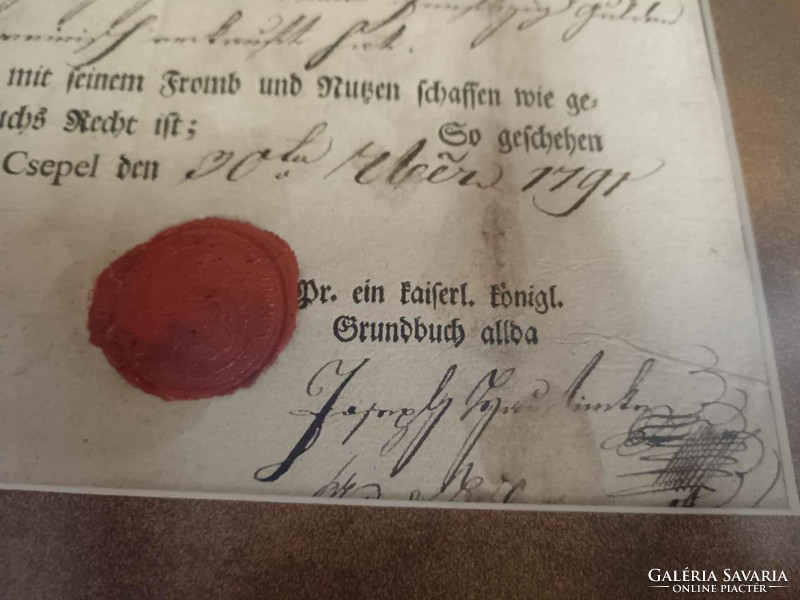 Gulden
verkauft hat.
mit ſeinem Fromb und Nutzen ſchaffen wie ge⸗
uchs Recht iſt;
So geſchehen
Csepel den 30ten 1791
Pr. ein kaiſerl. königl.
Grundbuch allda
Joseph
GALÉRIA SAVARIA
ONLINE PIACTÉR